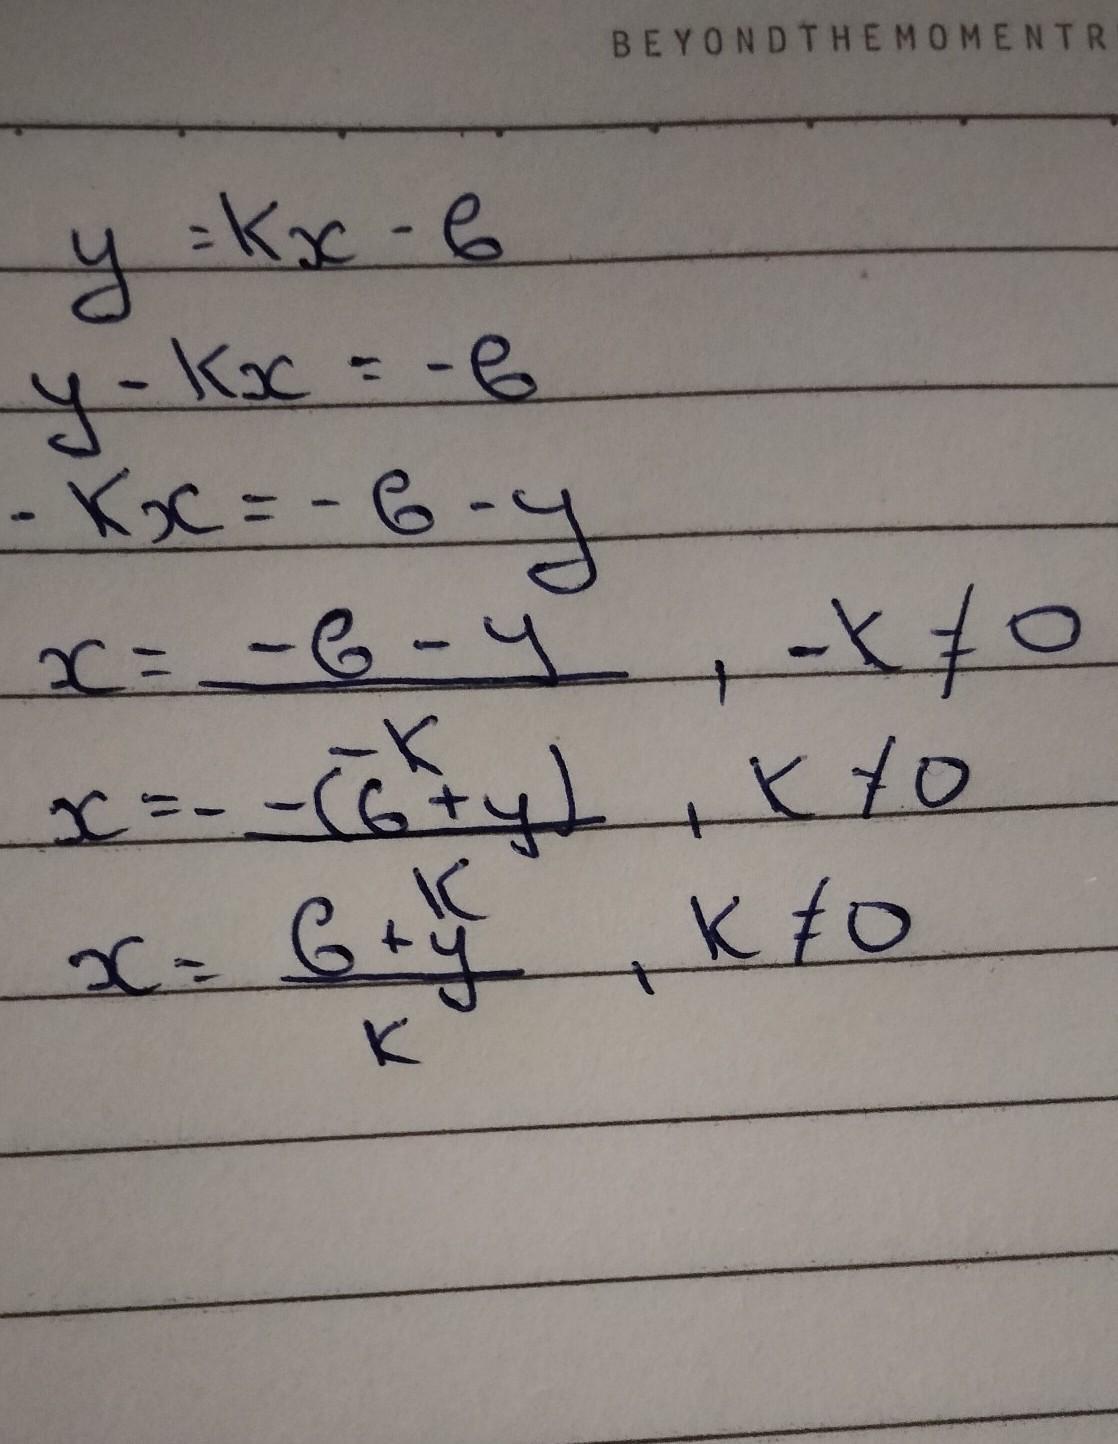 BEYONDTHEMOMENTR
y = kx - 6
y - kx = -6
- kx = - 6 - y
x = -6 - y / -k , -k ≠ 0
x = - -(6 + y) / k , k ≠ 0
x = 6 + y / k , k ≠ 0